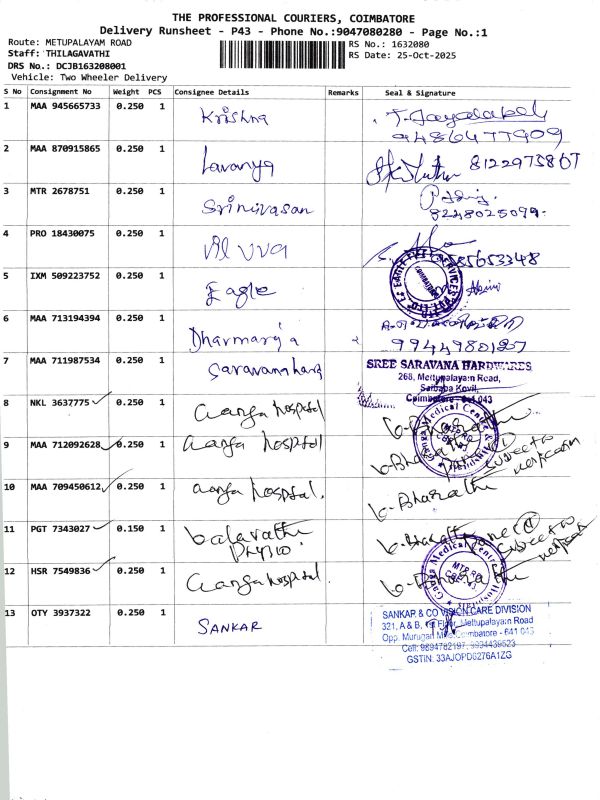 THE PROFESSIONAL COURIERS, COIMBATORE
Delivery Runsheet - P43 - Phone No.:9047080280 - Page No.:1
Route: METUPALAYAM ROAD RS No.: 1632080
Staff: THILAGAVATHI RS Date: 25-Oct-2025
DRS No.: DCJB163208001
Vehicle: Two Wheeler Delivery
S No Consignment No Weight PCS Consignee Details Remarks Seal & Signature
1 MAA 945665733 0.250 1 Krishna
9486477909
2 MAA 870915865 0.250 1 Lavanya
3 MTR 2678751 0.250 1 Srinivasan
8248025099
4 PRO 18430075 0.250 1
5 IXM 509223752 0.250 1 Eagle
6 MAA 713194394 0.250 1 Dharmaraja
7 MAA 711987534 0.250 1 SREE SARAVANA HARDWARES
268, Mettupalayam Road,
Saibaba Kovil,
Coimbatore - 641 043
8 NKL 3637775 0.250 1 Ganga hospital
9 MAA 712092628 0.250 1 Ganga hospital G-Bharathi
10 MAA 709450612 0.250 1 Ganga hospital. G-Bharathi
11 PGT 7343027 0.150 1
12 HSR 7549836 0.250 1 Ganga hospital. G-Bharathi
Ganga Medical Centre &
13 OTY 3937322 0.250 1 SANKAR
SANKAR & CO VISION CARE DIVISION
321, A & B, Floor, Mettupalayam Road
Opp. Murugan Mills, Coimbatore - 641 043
Cell: 9894762197, 9994439523
GSTIN: 33AJOPD6276A1ZG